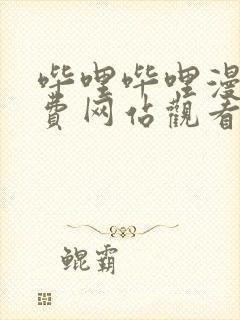 哔哩哔哩漫
费网佔觀看
鲲霸